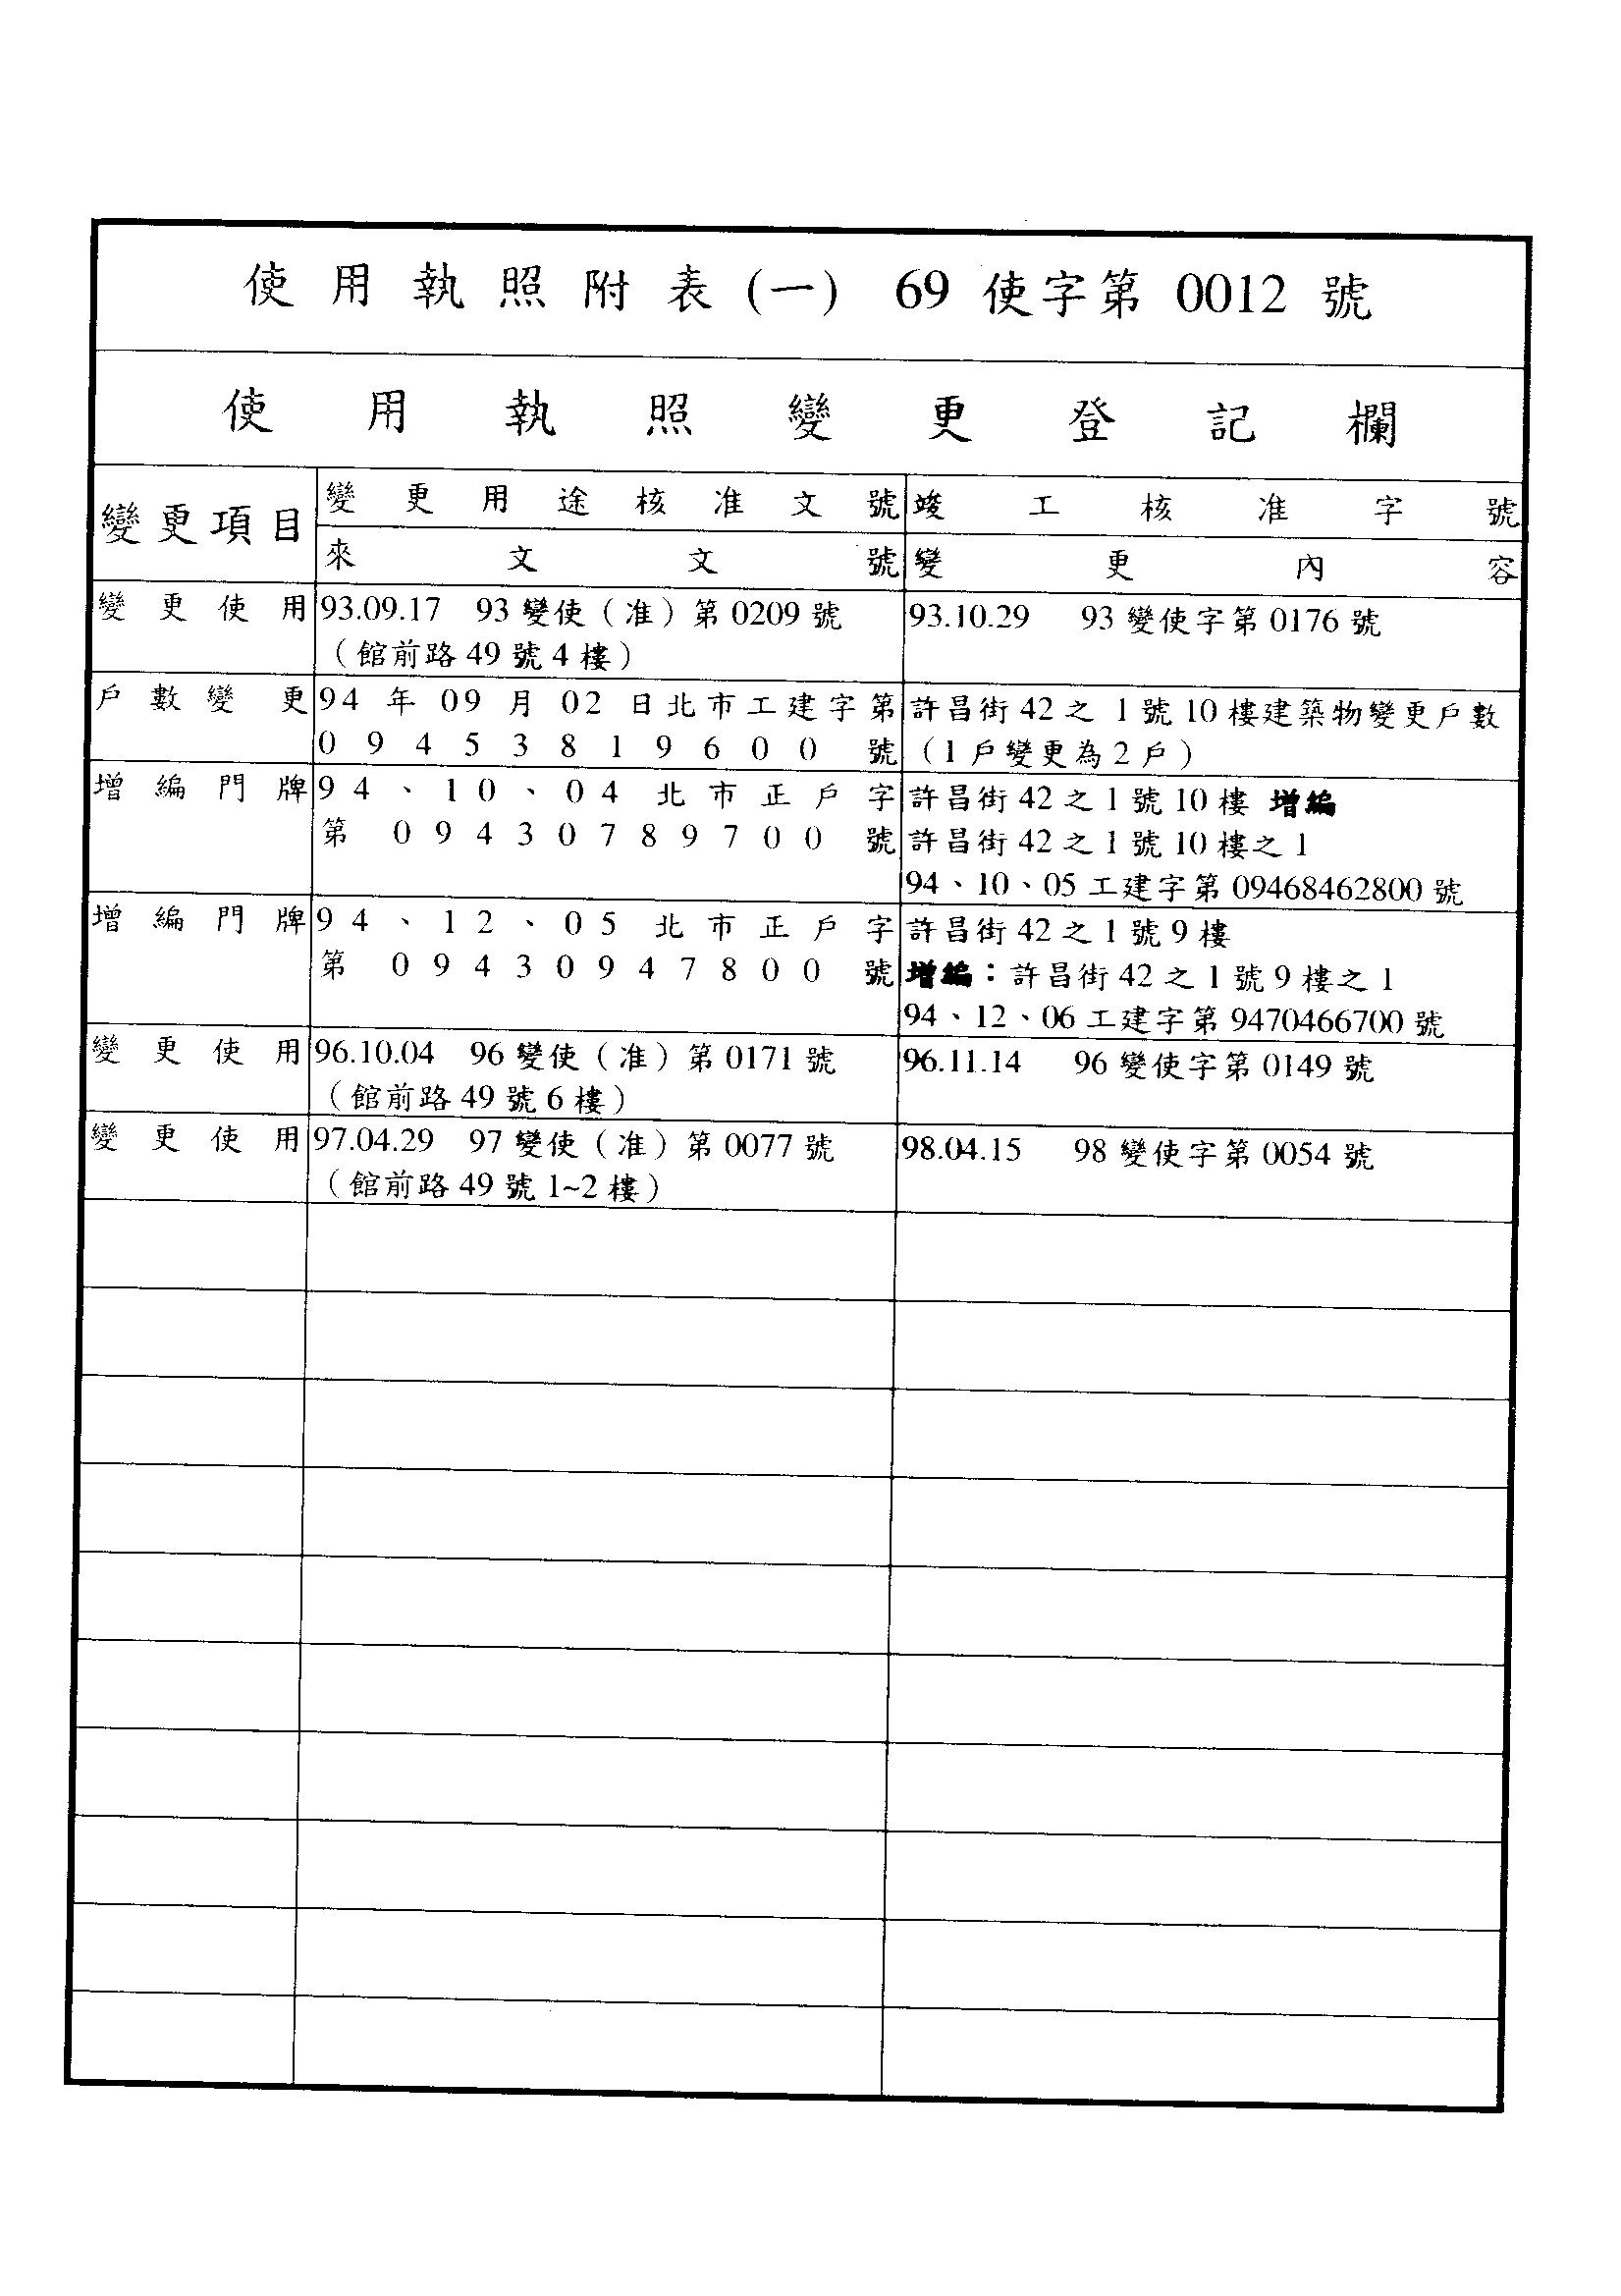 使用執照附表(一) 69 使字第 0012 號
使用執照變更登記欄
變更項目
變更用途核准文號
竣工核准字號
來文文號
變更內容
變更使用
93.09.17 93變使（准）第0209號
（館前路49號4樓）
93.10.29 93變使字第0176號
戶數變更
94年09月02日北市工建字第
09453819600號
許昌街42之1號10樓建築物變更戶數
（1戶變更為2戶）
增編門牌
94、10、04北市正戶字
第09430789700號
許昌街42之1號10樓 增編
許昌街42之1號10樓之1
94、10、05工建字第09468462800號
增編門牌
94、12、05北市正戶字
第09430947800號
許昌街42之1號9樓
增編：許昌街42之1號9樓之1
94、12、06工建字第9470466700號
變更使用
96.10.04 96變使（准）第0171號
（館前路49號6樓）
96.11.14 96變使字第0149號
變更使用
97.04.29 97變使（准）第0077號
（館前路49號1~2樓）
98.04.15 98變使字第0054號